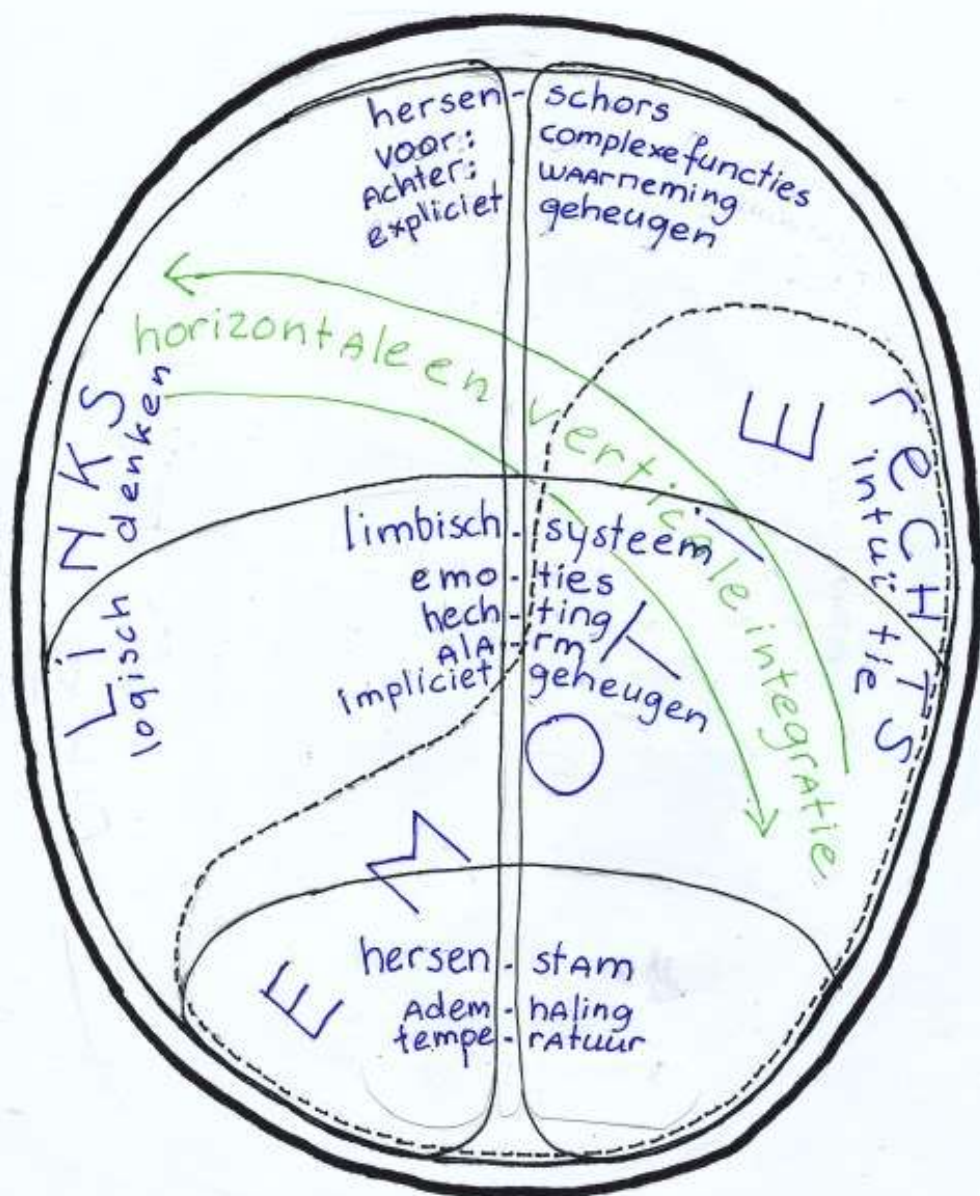 hersen - schors
voor: complexe functies
Achter: WAArneming
expliciet geheugen
horizontale en verticale integrAtie
LINKS
logisch denken
reCHTS
intuïtie
limbisch - systeem
emo - ties
hech - ting
AlA - rm
impliciet geheugen
EMOTIE
hersen - stAm
Adem - hAling
tempe - rAtuur